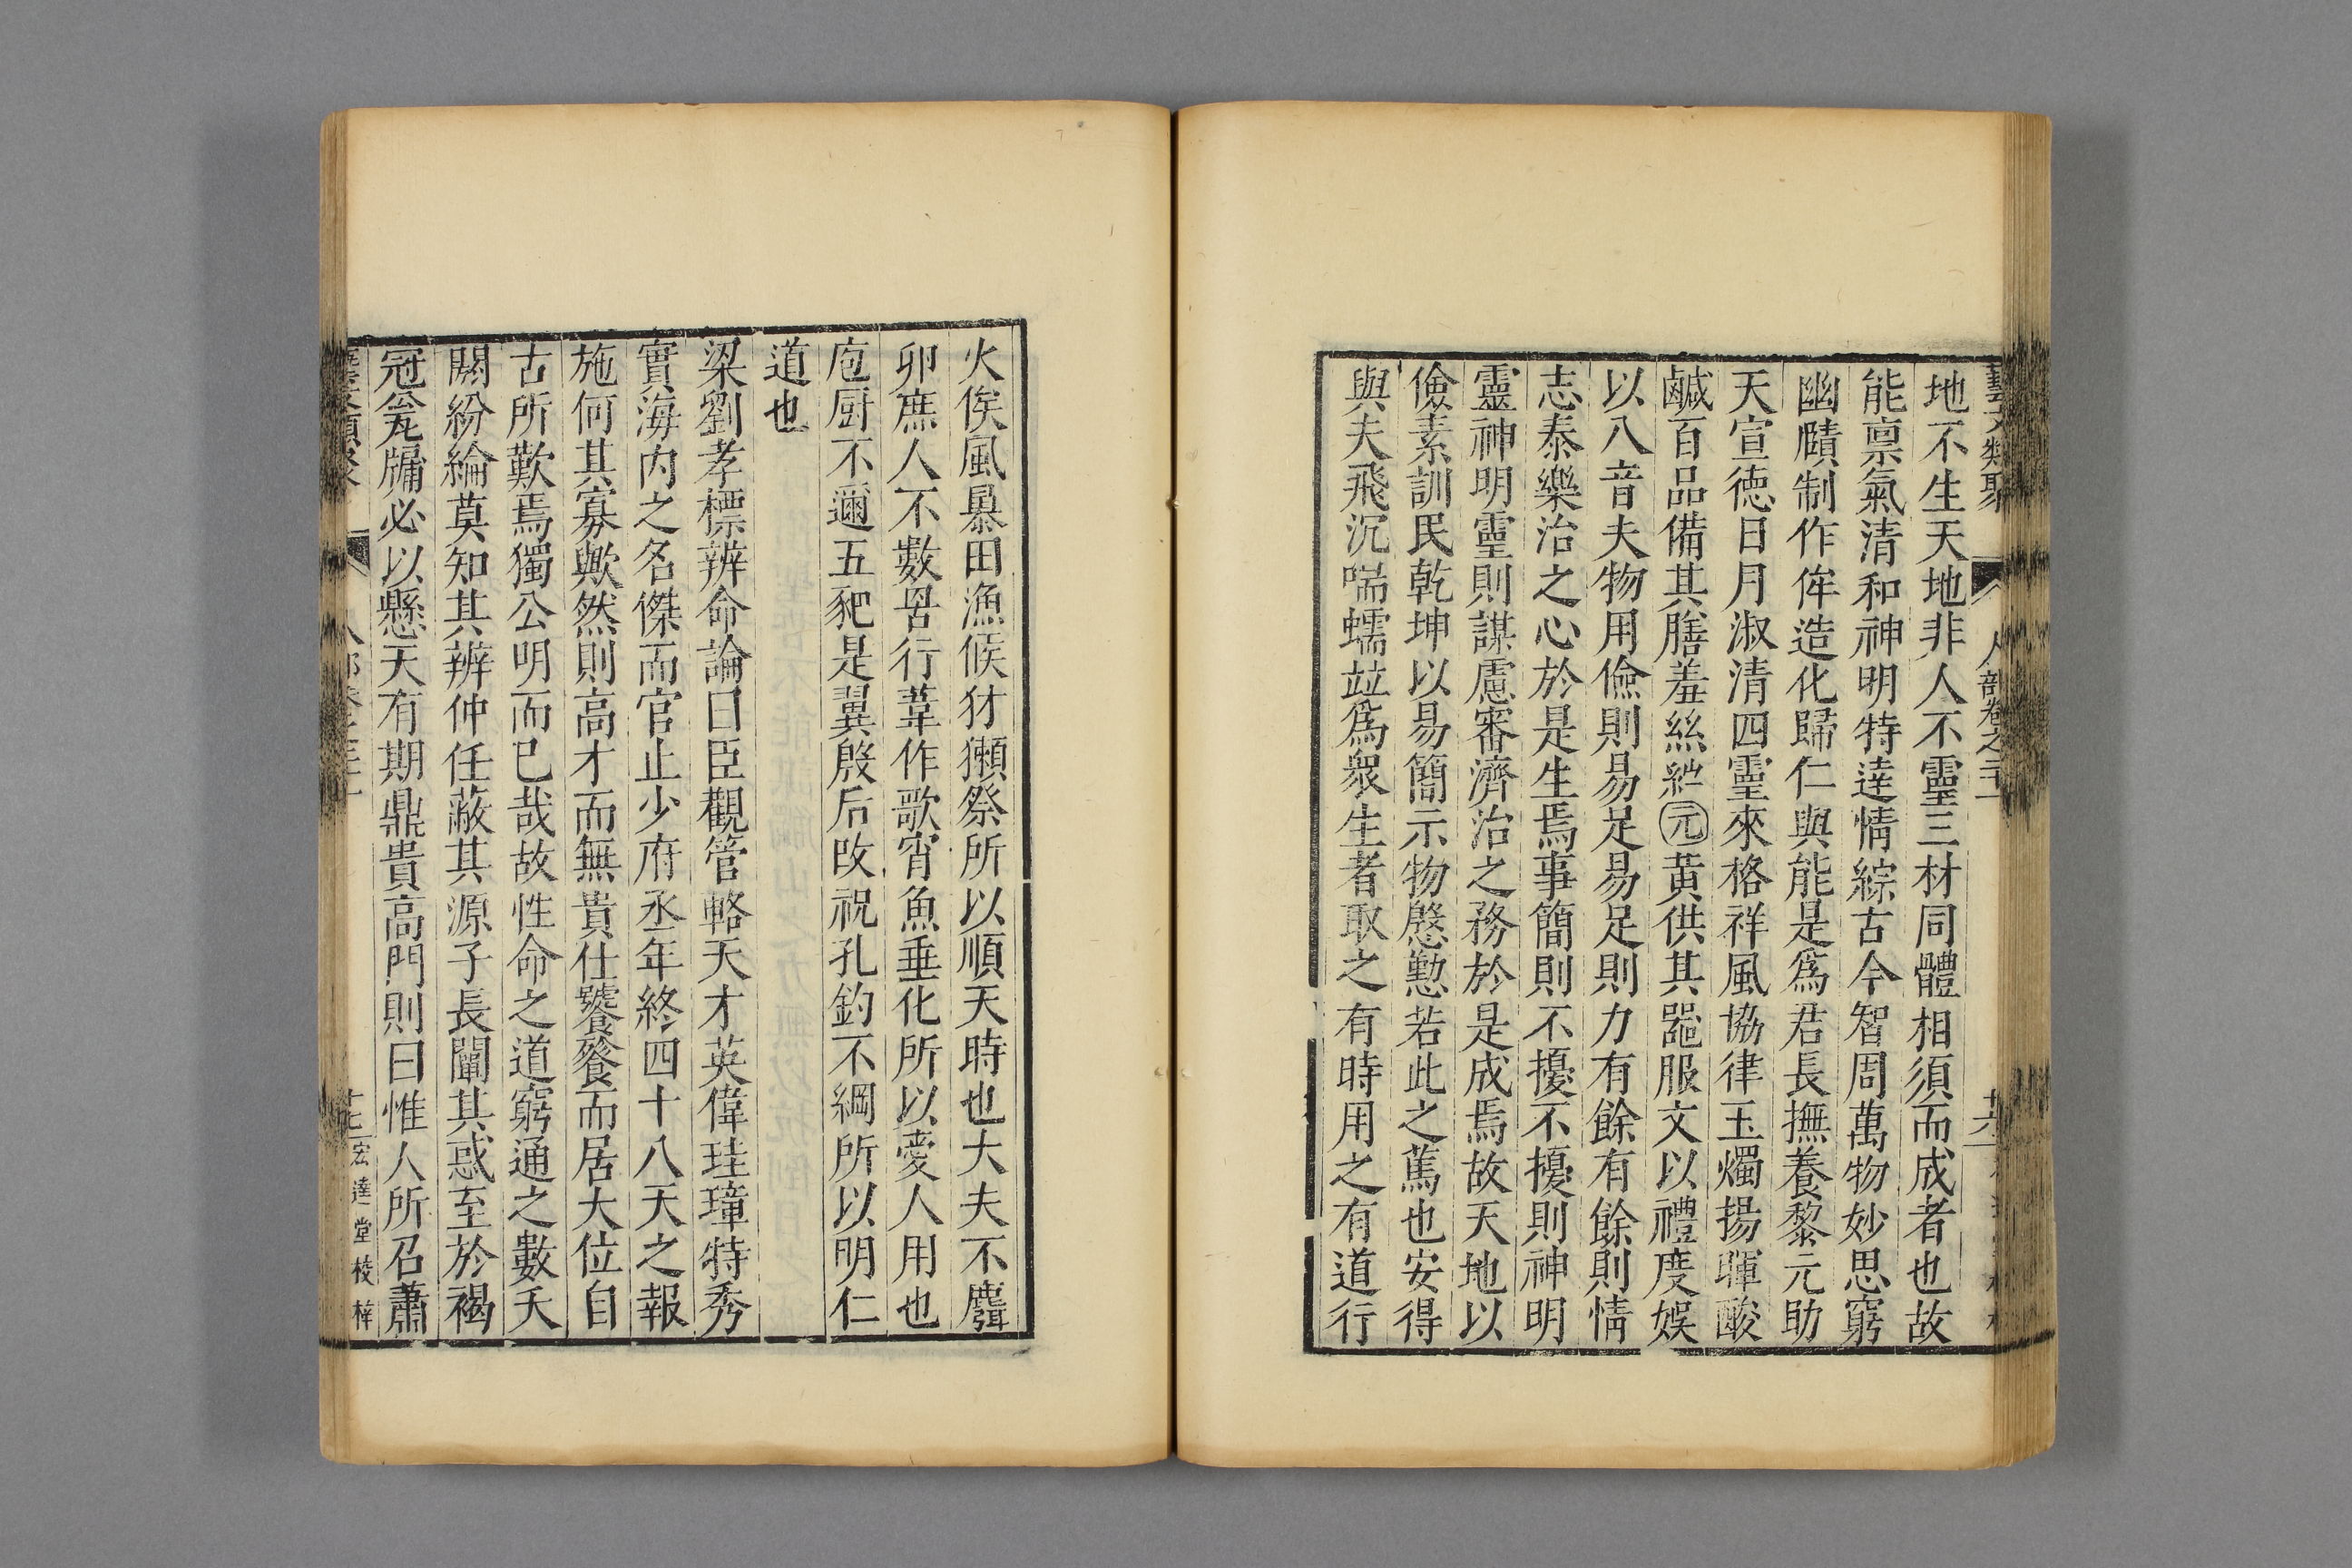 藝文類聚 人部卷之二十一
地不生天地非人不靈三材同體相須而成者也故
能稟氣清和神明特達情綜古今智周萬物妙思窮
幽賾制作侔造化歸仁與能是爲君長撫養黎元助
天宣德日月淑清四靈來格祥風協律玉燭揚暉酸
鹹百品備其膳羞絲紲元黃供其器服文以禮度娛
以八音夫物用儉則易足易足則力有餘有餘則情
志泰樂治之心於是生焉事簡則不擾不擾則神明
靈神明靈則謀慮審濟治之務於是成焉故天地以
儉素訓民乾坤以易簡示物慇懃若此之篤也安得
與夫飛沉喘蠕竝爲衆生者取之有時用之有道行
火俟風暴田漁候犲獺祭所以順天時也大夫不麛
卵庶人不數罟行葦作歌宵魚垂化所以愛人用也
庖厨不邇五豝是翼殷后改祝孔釣不綱所以明仁
道也
梁劉孝標辨命論曰臣觀管輅天才英偉珪璋特秀
實海内之名傑而官止少府丞年終四十八天之報
施何其寡歟然則高才而無貴仕饕餮而居大位自
古所歎焉獨公明而已哉故性命之道窮通之數夭
閼紛綸莫知其辨仲任蔽其源子長闡其惑至於褐
冠瓮牖必以懸天有期鼎貴高門則曰惟人所召蕭
十七 宏達堂校梓